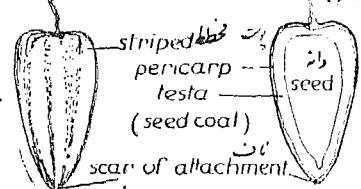 striped مخطط پوت
pericarp
testa
(seed coal)
دانه
seed
scar of attachment